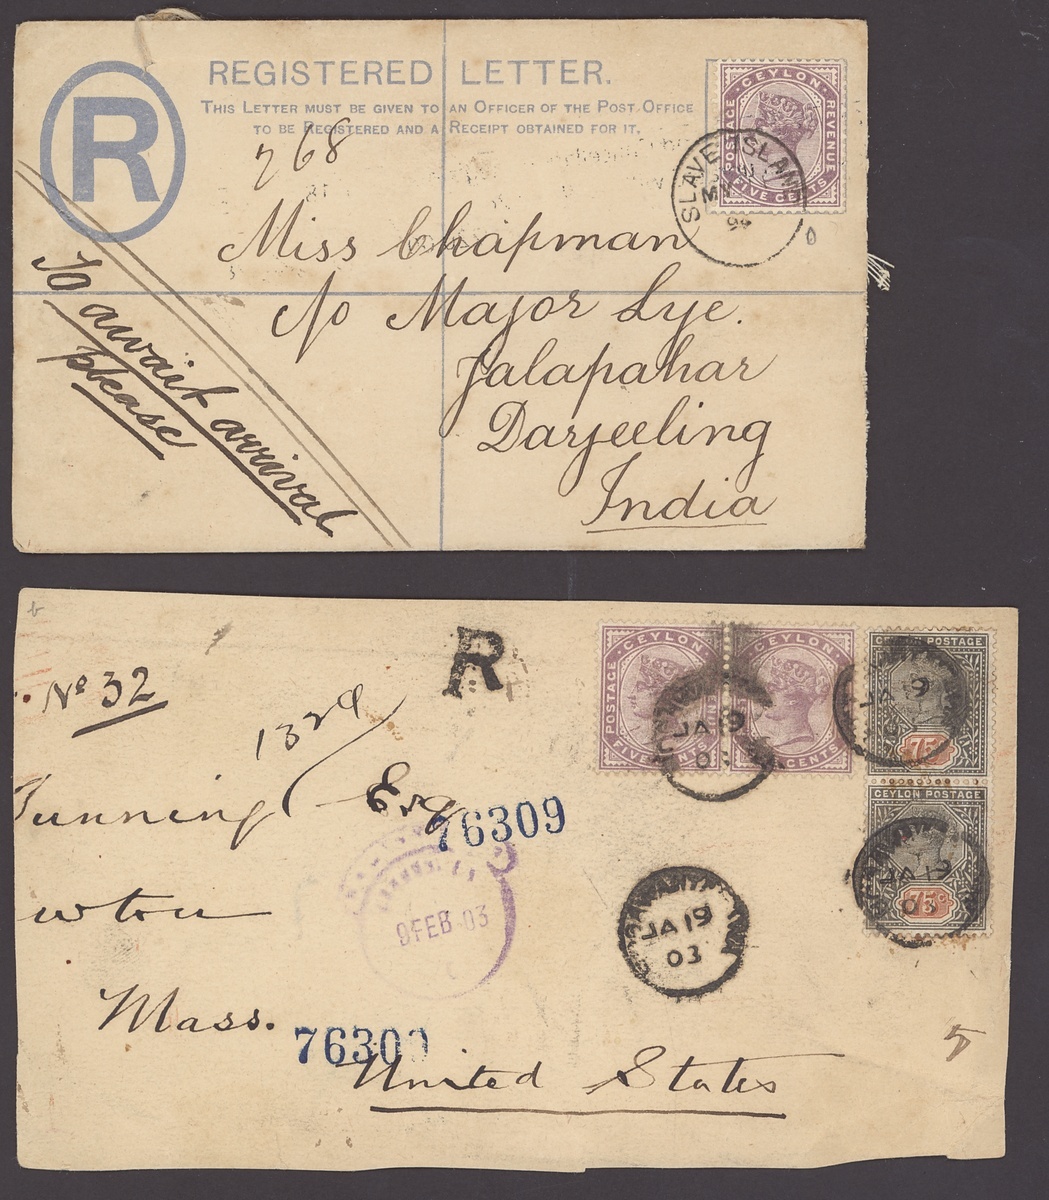 REGISTERED LETTER.
THIS LETTER MUST BE GIVEN TO AN OFFICER OF THE POST OFFICE
TO BE REGISTERED AND A RECEIPT OBTAINED FOR IT.
R
768
CEYLON
POSTAGE
REVENUE
FIVE CENTS
SLAVE ISLAND
MY
Miss Chapman
c/o Major Lye.
Jalapahar
Darjeeling
India
To await arrival
please
R
No 32
Esq
76309
9 FEB 03
Mass.
76309
United States
POSTAGE CEYLON
FIVE CENTS
CEYLON
CENTS
JA 19
03
CEYLON POSTAGE
75c
JA 19
CEYLON POSTAGE
75c
JA 19
03
JA 19
03